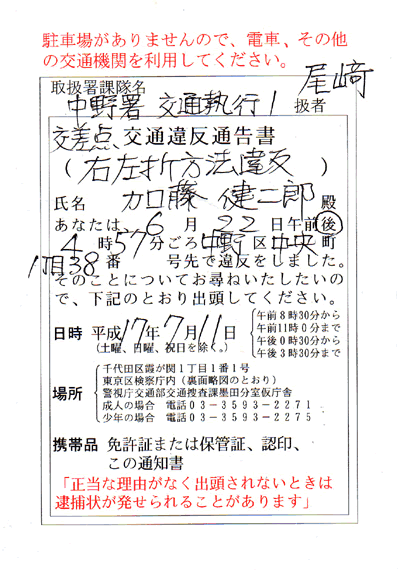 駐車場がありませんので、電車、その他
の交通機関を利用してください。
取扱署課隊名
中野署 交通執行1
扱者 尾﨑
交差点 交通違反通告書
(右左折方法違反)
氏名 加藤 健二郎 殿
あなたは、6月22日午前後
4時57分ごろ中野区中央町
1丁目38番 号先で違反をしました。
そのことについてお尋ねいたしたいの
で、下記のとおり出頭してください。
日時 平成17年7月11日
(土曜、日曜、祝日を除く。)
午前8時30分から
午前11時0分まで
午後0時30分から
午後3時30分まで
場所
千代田区霞が関1丁目1番1号
東京区検察庁内(裏面略図のとおり)
警視庁交通部交通捜査課墨田分室仮庁舎
成人の場合 電話03-3593-2271
少年の場合 電話03-3593-2275
携帯品 免許証または保管証、認印、
この通知書
「正当な理由がなく出頭されないときは
逮捕状が発せられることがあります」